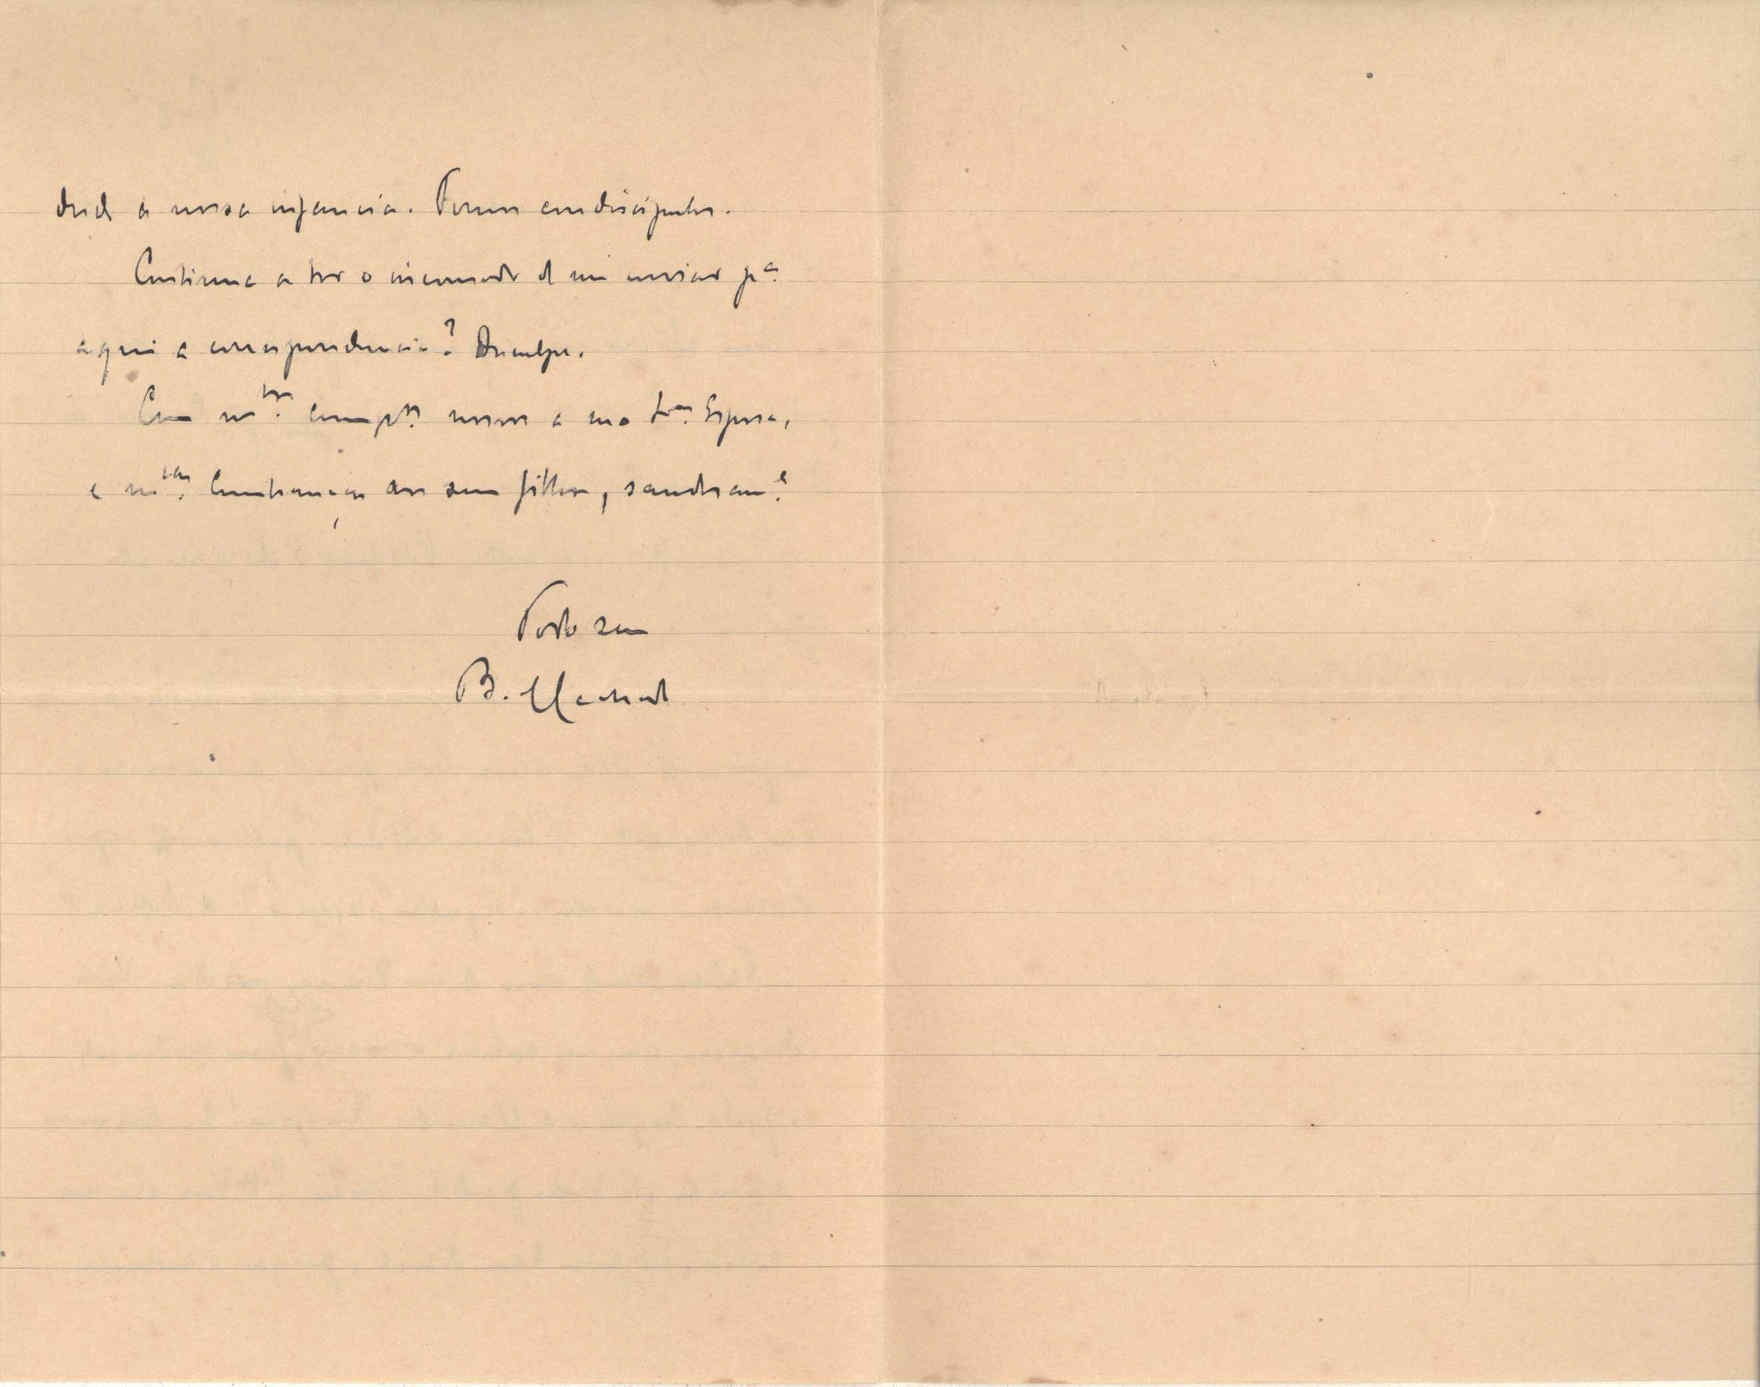 desde a nossa infancia. Fomos condiscipulos.
Continua a ter o incomodo de me enviar p.ª
aqui a correspondencia? Desculpe.
Com m.tos cump.tos nossos a sua Ex.ma Esposa,
e m.tas lembranças aos seus filhos, saudosam.e
Todo seu
B. Machado